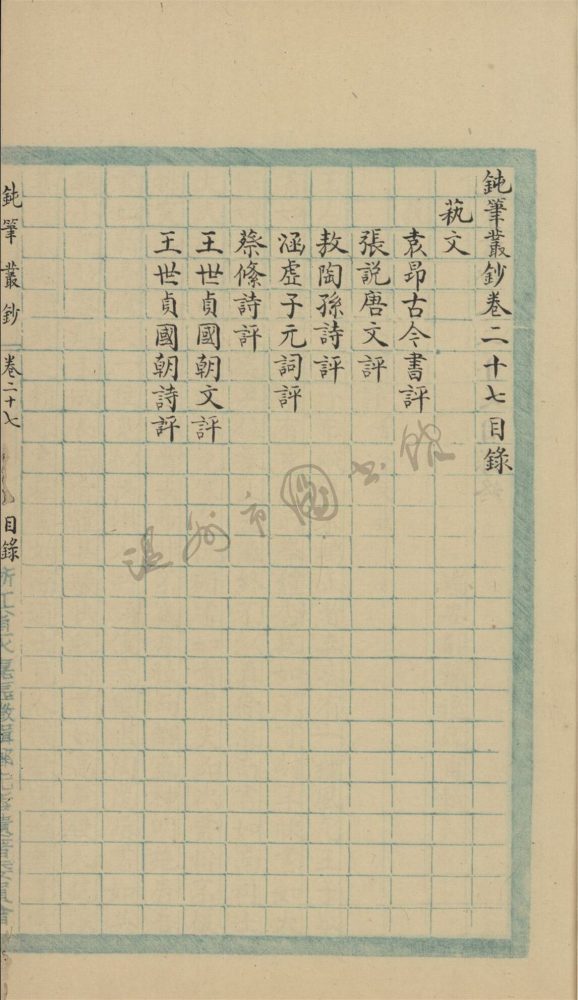 鈍筆叢鈔卷二十七目錄
蓺文
袁昂古今書評
張説唐文評
敖陶孫詩評
涵虛子元詞評
蔡絛詩評
王世貞國朝文評
王世貞國朝詩評
鈍筆叢鈔 卷二十七 目錄
溫州市圖书館